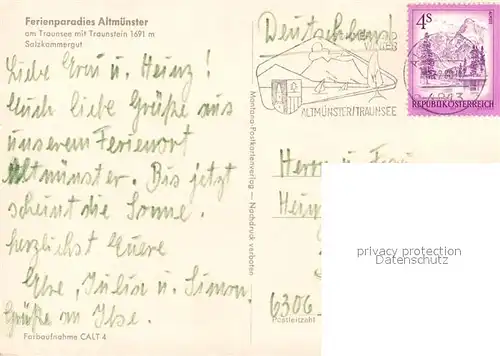 Ferienparadies Altmünster
am Traunsee mit Traunstein 1691 m
Salzkammergut
Liebe Erni u. Heinz!
Auch liebe Grüße aus
unserem Ferienort
Altmünster. Bis jetzt
scheint die Sonne.
herzlichst Euere
Else, Julia u. Simon.
Grüße an Ilse.
Farbaufnahme CALT 4
Postkartenverlag – Nachdruck verboten
Deutschland
ALTMÜNSTER/TRAUNSEE
4S
REPUBLIK ÖSTERREICH
4813
Herrn u. Frau
Heinz
6306
Postleitzahl
privacy protection
Datenschutz